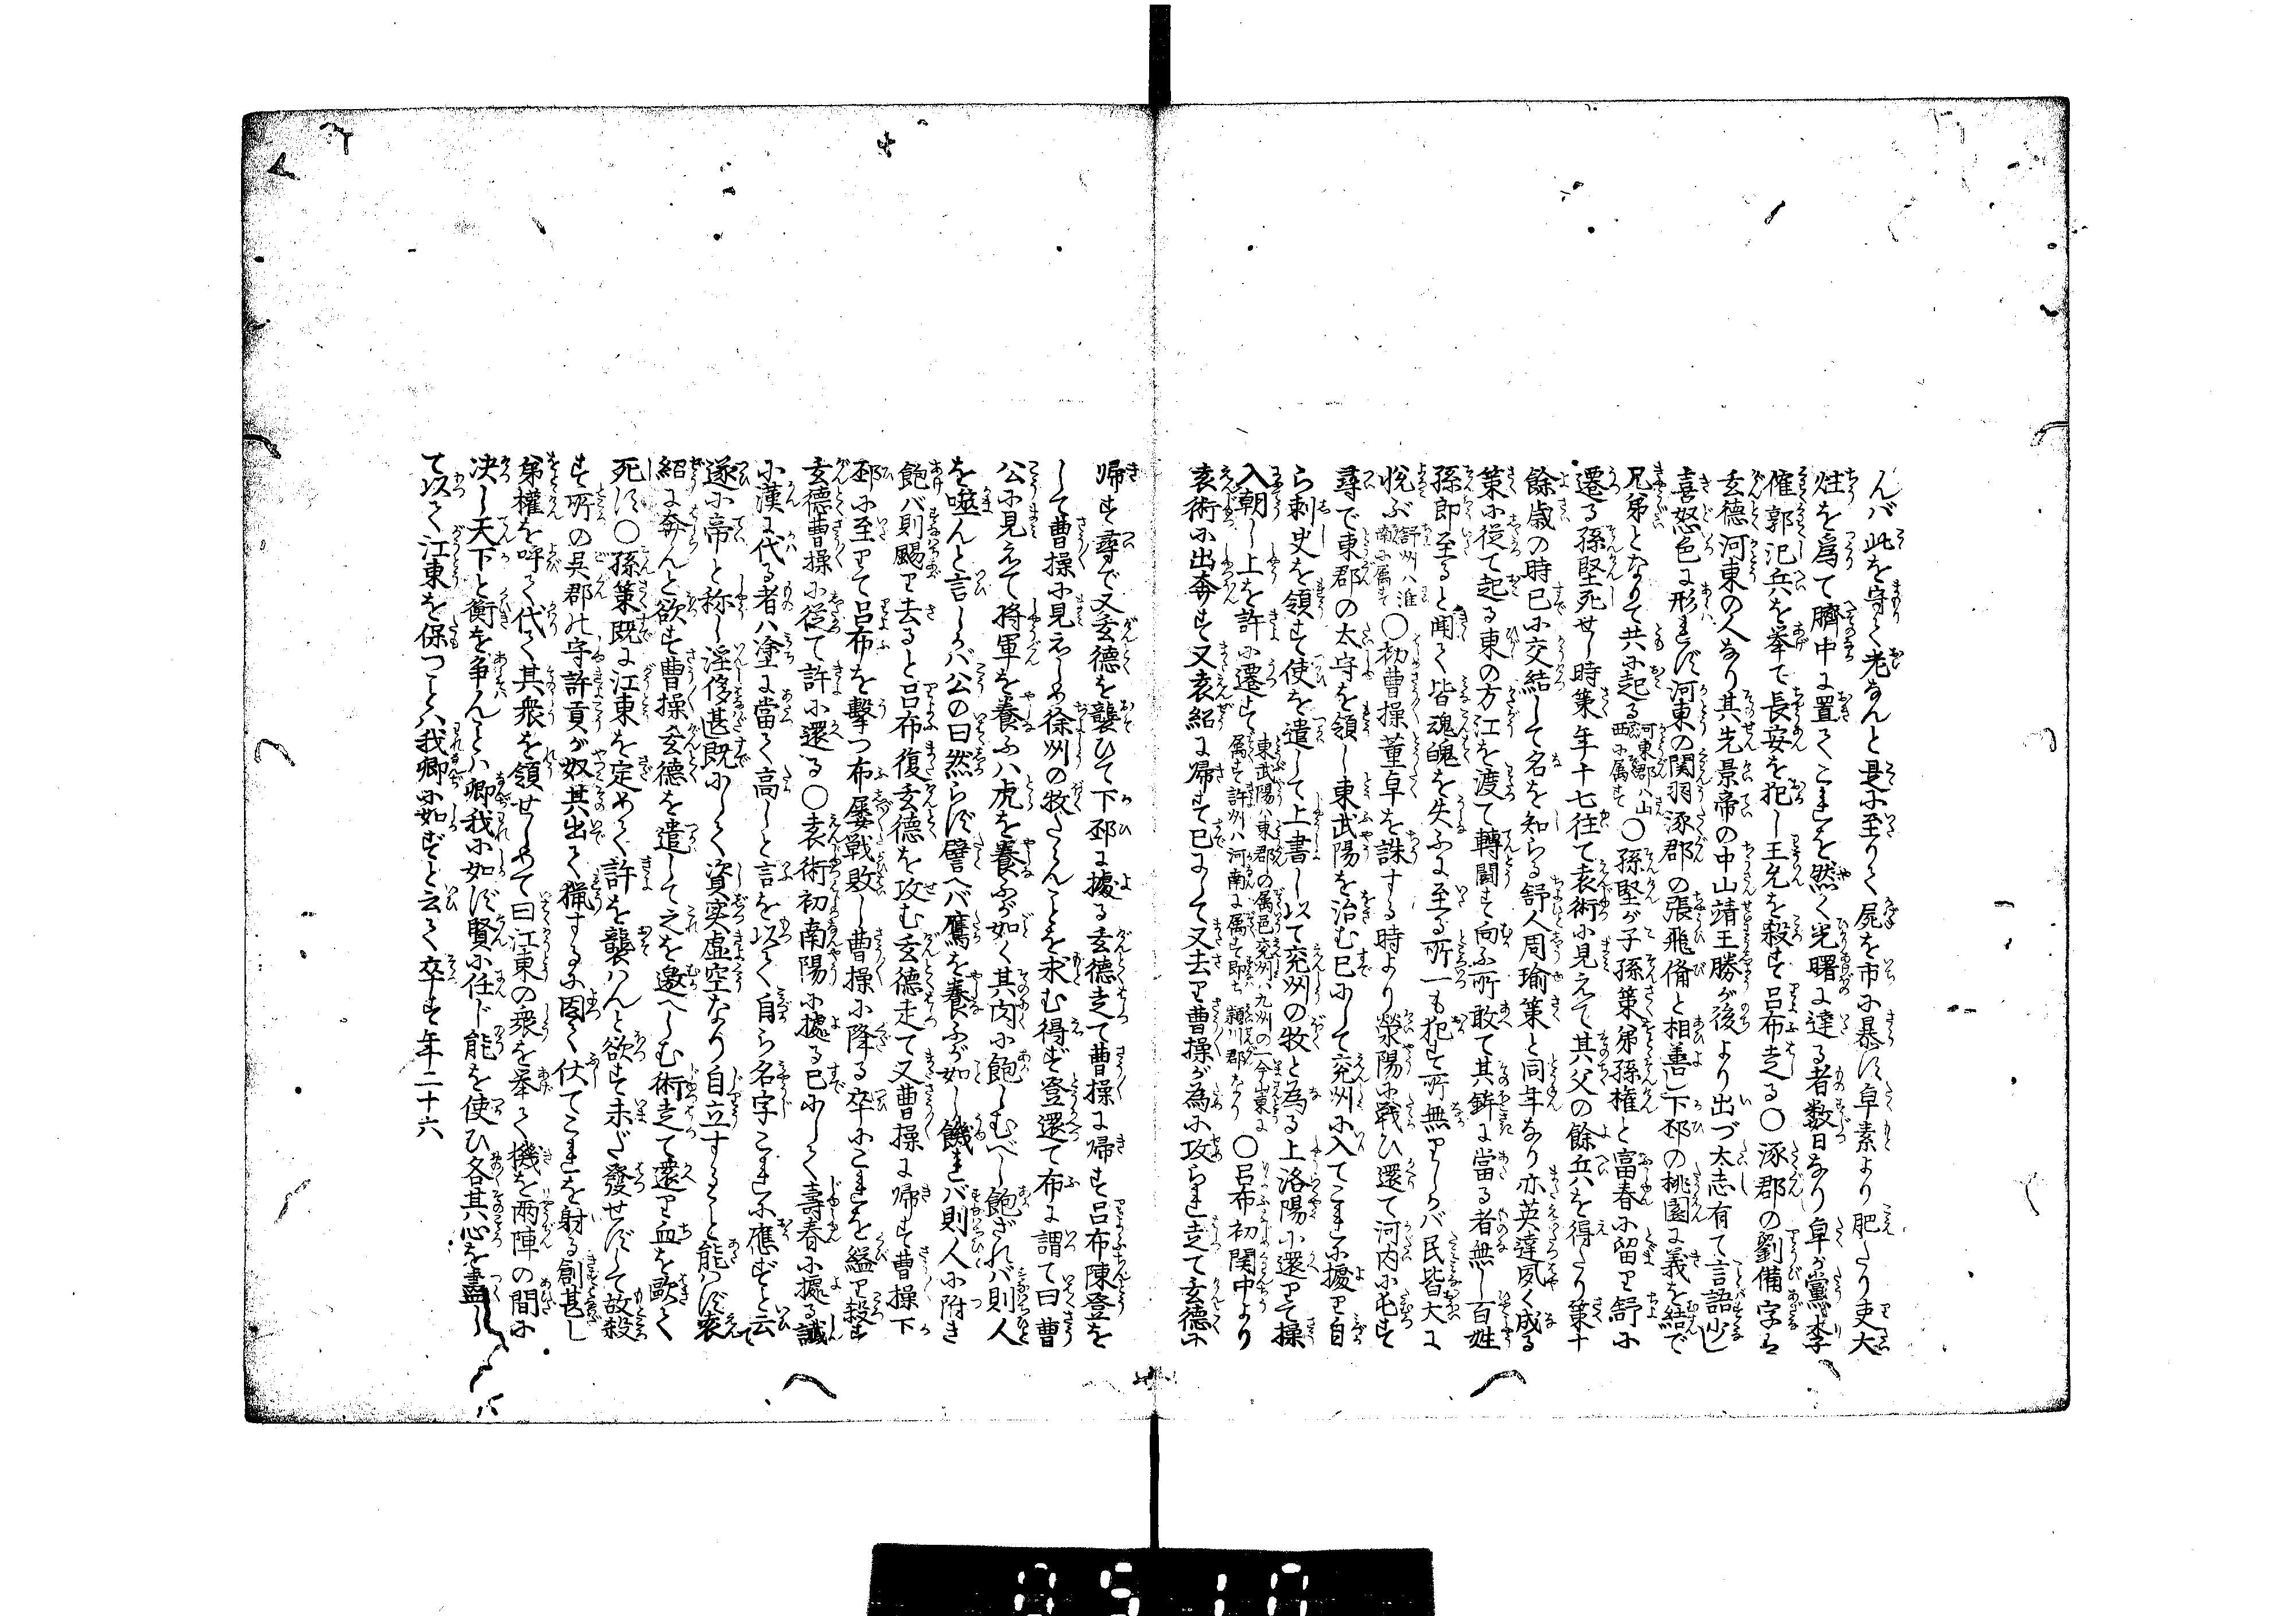 んバ此を守て老なんと是に至りて屍を市に暴ス卓素より肥たり吏大
炷を為て臍中に置てこれを然く光曙に達る者数日なり卓が黨李
傕郭汜兵を挙て長安を犯し王允を殺す呂布走る〇涿郡の劉備字は
玄徳河東の人なり其先景帝の中山靖王勝が後より出づ大志有て言語少し
喜怒色に形れず河東の関羽涿郡の張飛備と相善し下邳の桃園に義を結で
兄弟となりて共に起る河東郡ハ山西に属す〇孫堅が子孫策弟孫権と富春に留り舒に
遷る孫堅死せし時策年十七往て袁術に見えて其父の餘兵を得たり策十
餘歳の時已に交結して名を知らる舒人周瑜策と同年なり亦英達夙く成る
策に従て起る東の方江を渡て轉闘す向ふ所敢て其鉾に當る者無し百姓
孫郎至ると聞て皆魂魄を失ふに至る所一も犯す所無りしかバ民皆大に
悦ぶ舒州ハ淮南に属す〇初曹操董卓を誅する時より滎陽に戦ひ還て河内に屯す
尋で東郡の太守を領し東武陽を治む已にして兗州に入てこれに拠り自
ら刺史を領す使を遣して上書し以て兗州の牧と為る上洛陽に還りて操
入朝し上を許に遷す東武陽ハ東郡の属邑兗州ハ九州の一今山東に属す許州ハ河南に属す即ち潁川郡なり〇呂布初関中より
袁術に出奔す又袁紹に帰す已にして又去り曹操が為に攻られ走て玄徳に
帰す尋で又玄徳を襲ひて下邳に據る玄徳走て曹操に帰す呂布陳登を
して曹操に見えしめ徐州の牧たらんことを求む得ず登還て布に謂て曰曹
公に見えて将軍を養ふハ虎を養ふが如く其肉に飽しむべし飽ざれバ則人
を噬んと言しかバ公の曰然らず譬へバ鷹を養ふが如し饑れバ則人に附き
飽バ則颺り去ると呂布復玄徳を攻む玄徳走て又曹操に帰す曹操下
邳に至りて呂布を撃つ布屡戦敗し曹操に降る卒にこれを縊り殺す
玄徳曹操に従て許に還る〇袁術初南陽に據る已にして壽春に據る讖
に漢に代る者ハ塗に當て高しと言を以て自ら名字これに應ずと云て
遂に帝と称し淫侈甚既にして資実虚空なり自立すること能ハず袁
紹に奔んと欲す曹操玄徳を遣して之を邀へしむ術走て還り血を歐て
死ス〇孫策既に江東を定めて許を襲ハんと欲す未だ發せずして故殺
す所の呉郡の守許貢が奴其出て猟するに因て伏てこれを射る創甚し
弟權を呼て代て其衆を領せしめて曰江東の衆を挙て機を両陣の間に
决し天下と衡を争んとハ卿我に如ず賢に任じ能を使ひ各其心を盡し
て以て江東を保つことハ我卿に如ずと云て卒す年二十六
0510